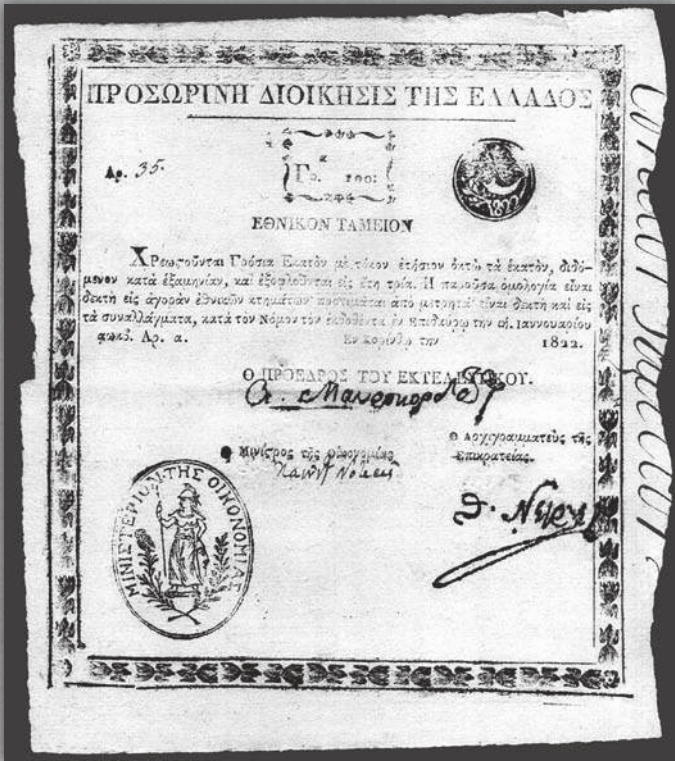 ΠΡΟΣΩΡΙΝΗ ΔΙΟΙΚΗΣΙΣ ΤΗΣ ΕΛΛΑΔΟΣ
Αρ. 35.
Γρ. α 100:
1822
ΕΘΝΙΚΟΝ ΤΑΜΕΙΟΝ
Χρεωστοῦνται Γρόσια Ἑκατὸν μὲ τόκον ἐτήσιον ὀκτὼ τὰ ἑκατὸν, διδό-
μενον κατὰ ἑξαμηνίαν, καὶ ἐξοφλοῦνται εἰς ἔτη τρία. Ἡ παροῦσα ὁμολογία εἶναι
δεκτὴ εἰς ἀγορὰν ἐθνικῶν κτημάτων προτιμᾶται ἀπὸ μετρητὰ εἶναι δεκτὴ καὶ εἰς
τὰ συναλλάγματα, κατὰ τὸν Νόμον τὸν ἐκδοθέντα ἐν Ἐπιδαύρῳ τὴν ιή. Ἰαννουαρίου
αωκβ. Αρ. α. Ἐν Κορίνθῳ τὴν 1822.
Ο ΠΡΟΕΔΡΟΣ ΤΟΥ ΕΚΤΕΛΕΣΤΙΚΟΥ.
Α. Μαυροκορδάτος
Ο Μινίστρος τῆς Οἰκονομίας
Ο Αρχιγραμματεὺς τῆς
Ἐπικρατείας.
Θ. Νέγρης
ΜΙΝΙΣΤΕΡΙΟΝ ΤΗΣ ΟΙΚΟΝΟΜΙΑΣ